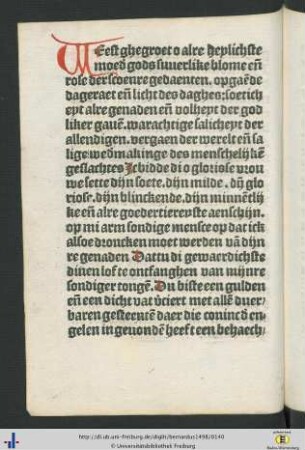 WEest ghegroet o alre heylichste
moed gods suuerlike blome eñ
rose der scoenre gedaenten. opgaẽde
dageraet eñ licht des daghes: soetich
eyt alre genaden eñ volheyt der god
liker gauẽ. warachtige salicheyt der
allendigen. vergaen der werelt eñ sa
lige wedmakinge des menschelijkẽ
geslachtes Jc bidde di o gloriose vrou
we sette dijn soete. dijn milde. dijn glo
riose. dijn blinckende. dijn minnẽlij
ke eñ alre goedertierenste aenschijn.
op mi arm sondige mensce op dat ick
alsoe droncken moet werden vã dijn
re genaden Dattu di gewaerdichste
dinen lof te ontfanghen van mijnre
sondiger tongẽ. Du biste een gulden
eñ een dicht vat vciert met allẽ duer
baren gesteentẽ daer die coninc d en
gelen in geuondẽ heeft een behaech
http://dl.ub.uni-freiburg.de/diglit/bernardus1498/0140
© Universitätsbibliothek Freiburg